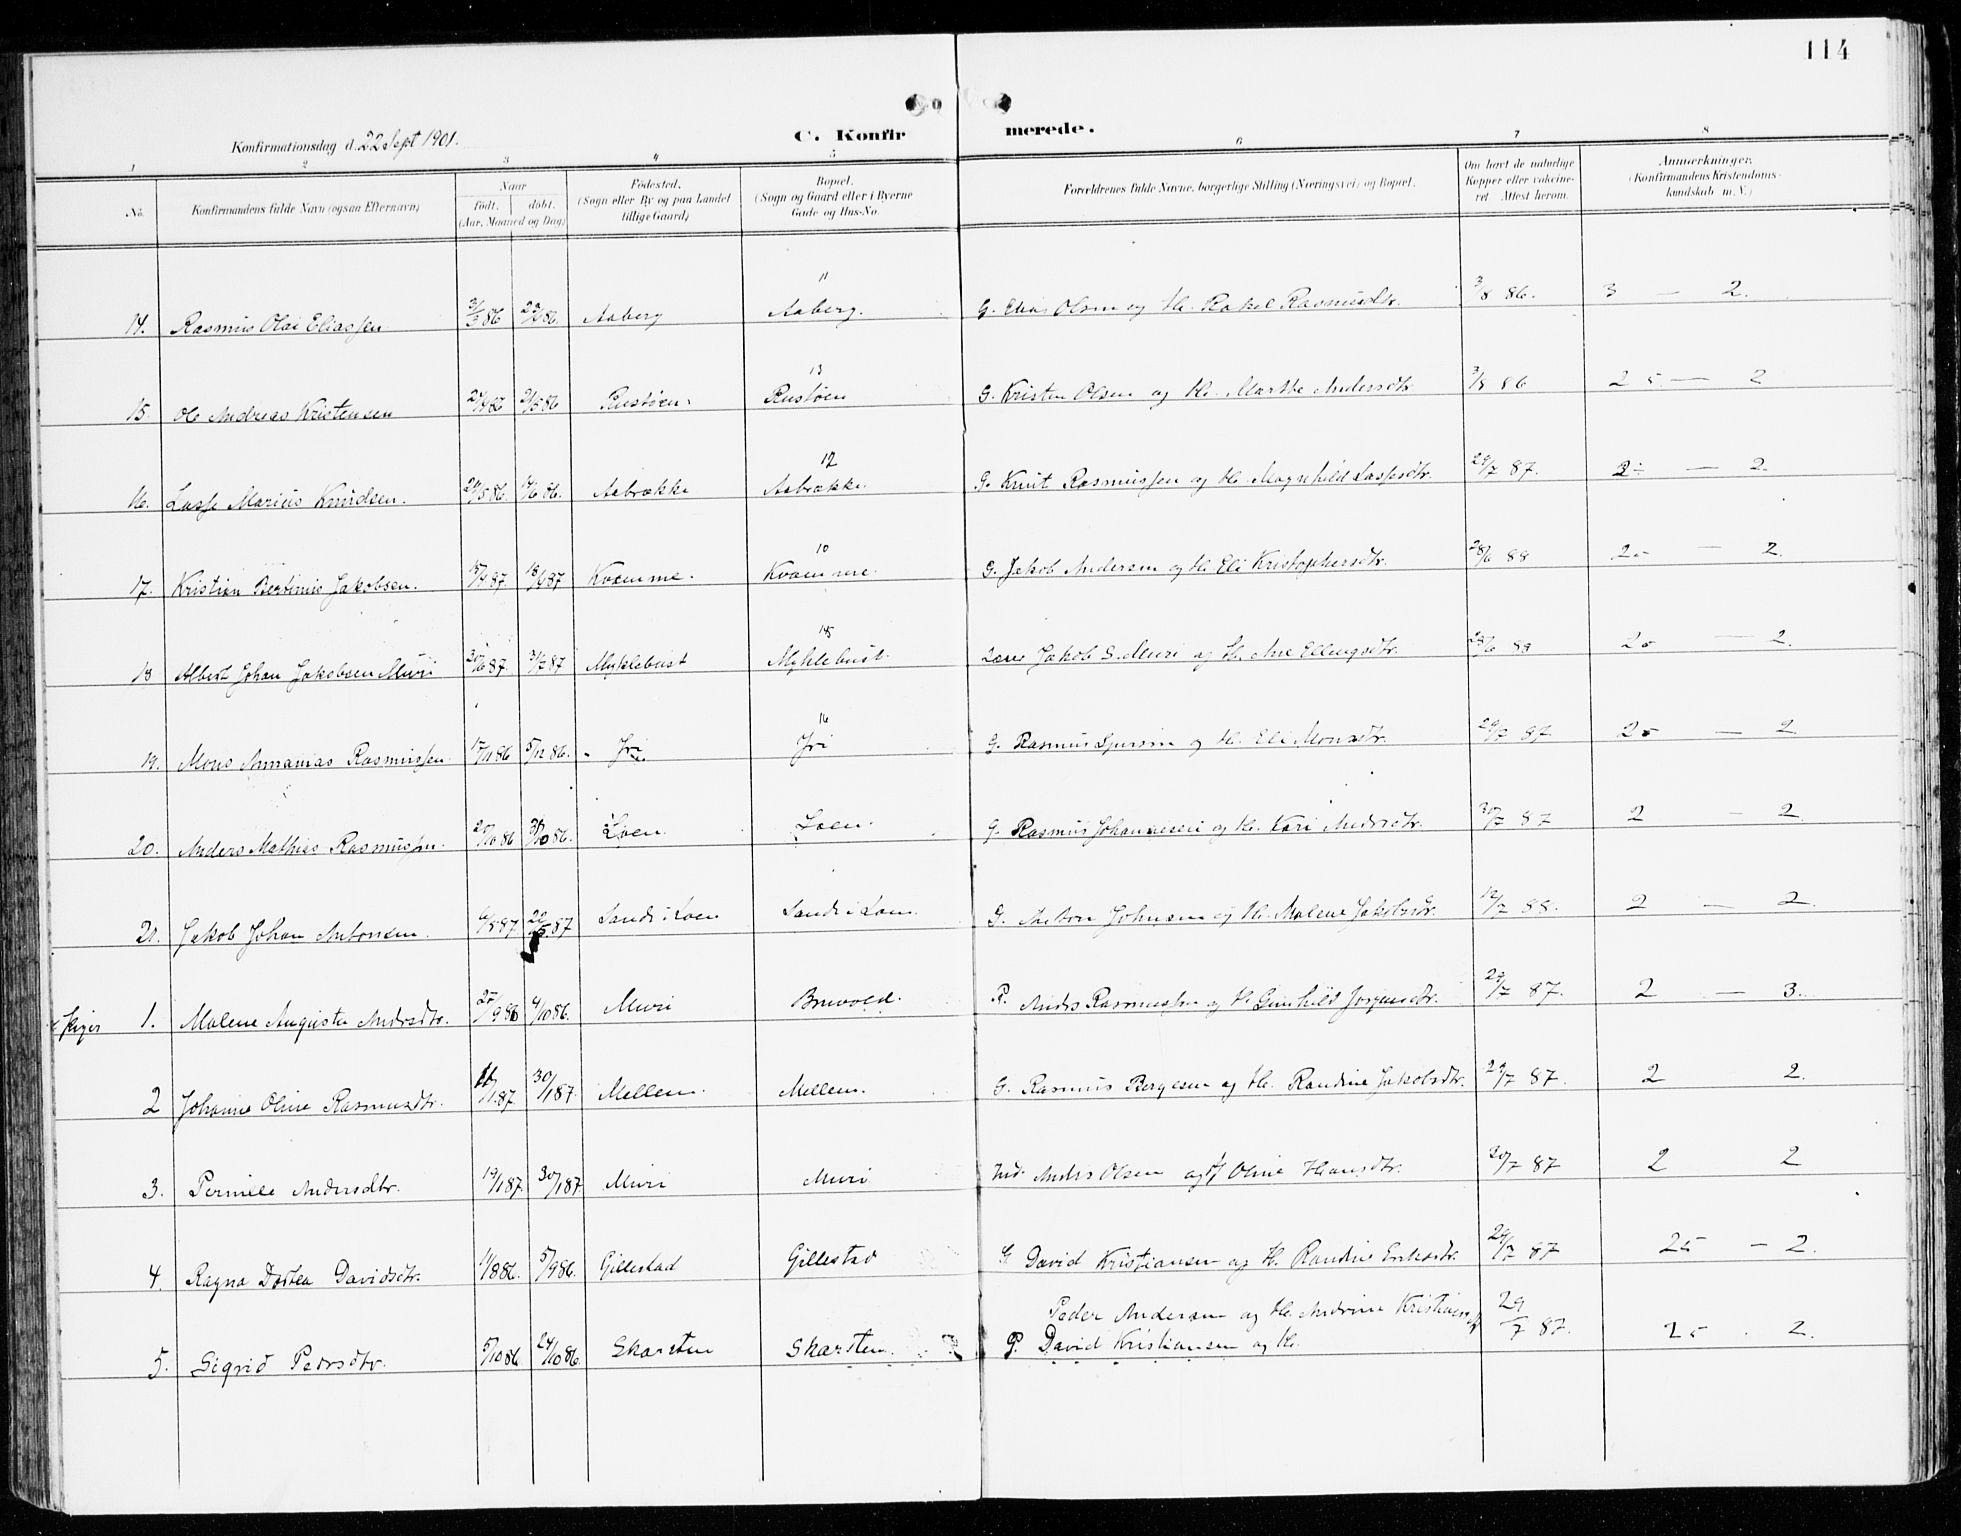 114
C. Konfirmerede.
Konfirmationsdag d. 22 Sept 1901.
1 2 3 4 5 6 7 8
No. Konfirmandens fulde Navn (ogsaa Efternavn) Naar født. døbt. (Aar, Maaned og Dag) Fødested. (Sogn eller By og paa Landet tillige Gaard) Bopæl. (Sogn og Gaard eller i Byerne Gade og Hus-No. Forældrenes fulde Navne, borgerlige Stilling (Næringsvei) og Bopæl. Om havt de naturlige Kopper eller vakcineret. Attest herom. Anmærkninger. (Konfirmandens Kristendomskundskab m. V.)
11
14. Rasmus Olai Eliassen 3/3 86 Aaberg Aaberg. G. Elias Olsen og H. Rakel Rasmusdtr. 3/8 86. 3 — 2.
13
15. Ole Andreas Kristensen 9/5 86 Rustøen Rustøen G. Kristen Olsen og H. Marthe Andersdtr 3/8 86 25 — 2
12
16. Lasse Marius Knudsen. 24/5 86. 14/6 86. Aabrække Aabrække. G. Knut Rasmussen og H. Magnhild Lassesdtr. 29/7 87. — 2.
10
17. Kristian Bertinus Jakobsen. 87. 87 Kvamme. Kvamme. G. Jakob Andersen og H. Eli Kristophersdtr. 28/6 88 25 — 2.
15
18 Albert Johan Jakobsen Muri 87. 3/7 87 Myklebust Myklebust. Jakob S. Muri og H. Ane Ellingsdtr. 28/6 88 25 — 2.
16
19. Mons Annanias Rasmussen. 15/11 86 5/12 86. Jri. Jri G. Rasmus og H. Eli Monsdtr. 29/7 87 25 — 2
20. Anders Mathias Rasmussen. 20/10 86 31/10 86. Loen. Loen. G. Rasmus Johannessen og H. Kari Andersdtr. 30/7 87 2 — 2
21. Jakob Johan Antonsen. 87 87 Sande i Loen Sande i Loen. G. Anton Johnsen og H. Malene Jakobsdtr. 12/7 88. 2 — 2.
Piger 1. Malene Augusta Andersdtr. 27/9 86 4/10 86. Muri Bruvold. P. Anders Rasmussen og H. Gunhild Jorgensdtr. 29/7 87. 2 — 3.
2 Johanne Oline Rasmusdtr. 11/1 87 30/1 87. Mellem. Mellem. G. Rasmus Bergesen og H. Randine Jakobsdtr. 29/7 87. 2 2.
3. Pernille Andersdtr. 19/1 87. 30/1 87 Muri Muri Ind. Anders Olsen og H Oline Hansdtr. 30/7 87 2 2
4. Ragna Dortea Davidsdtr. 11/8 86. 5/9 86. Gillestad Gillestad G. David Kristiansen og H. Randine Eriksdtr. 29/7 87 25 — 2.
Peder Andersen og H. Andrine
5. Sigrid Pedersdtr. 5/10 86 24/10 86. Skarsten Skarsten. P. David Kristiansen og H. 29/7 87. 25 . 2.